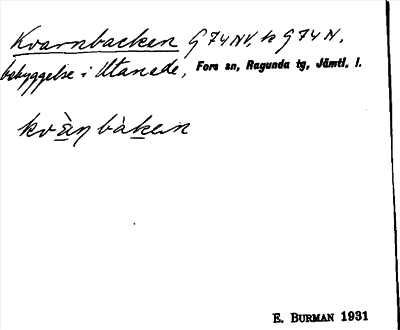 Kvarnbacken G74NV, h G74N.
bebyggelse i Utanede, Fors sn, Ragunda tg, Jämtl. l.
kvàn bàken
E. BURMAN 1931